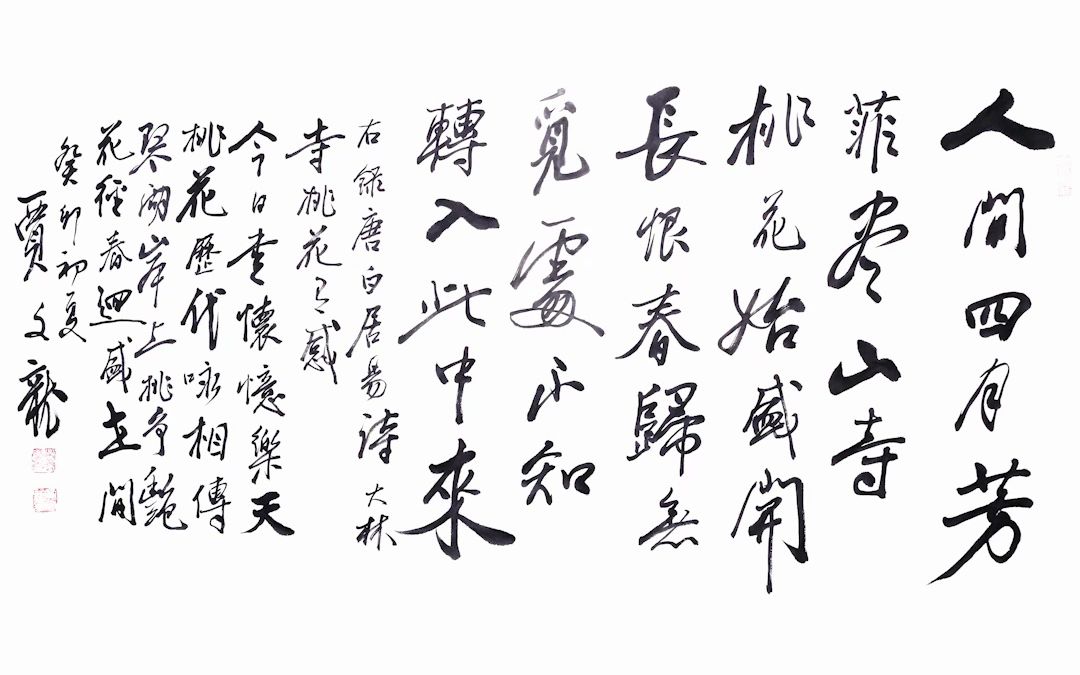 人間四月芳
菲尽山寺
桃花始盛開
長恨春歸無
覓處不知
轉入此中來
右錄唐白居易詩 大林
寺桃花有感
今日書懷憶樂天
桃花歷代咏相傳
琴湖岸上桃争艷
花徑春迴盛 間
癸卯初夏
賈文龍